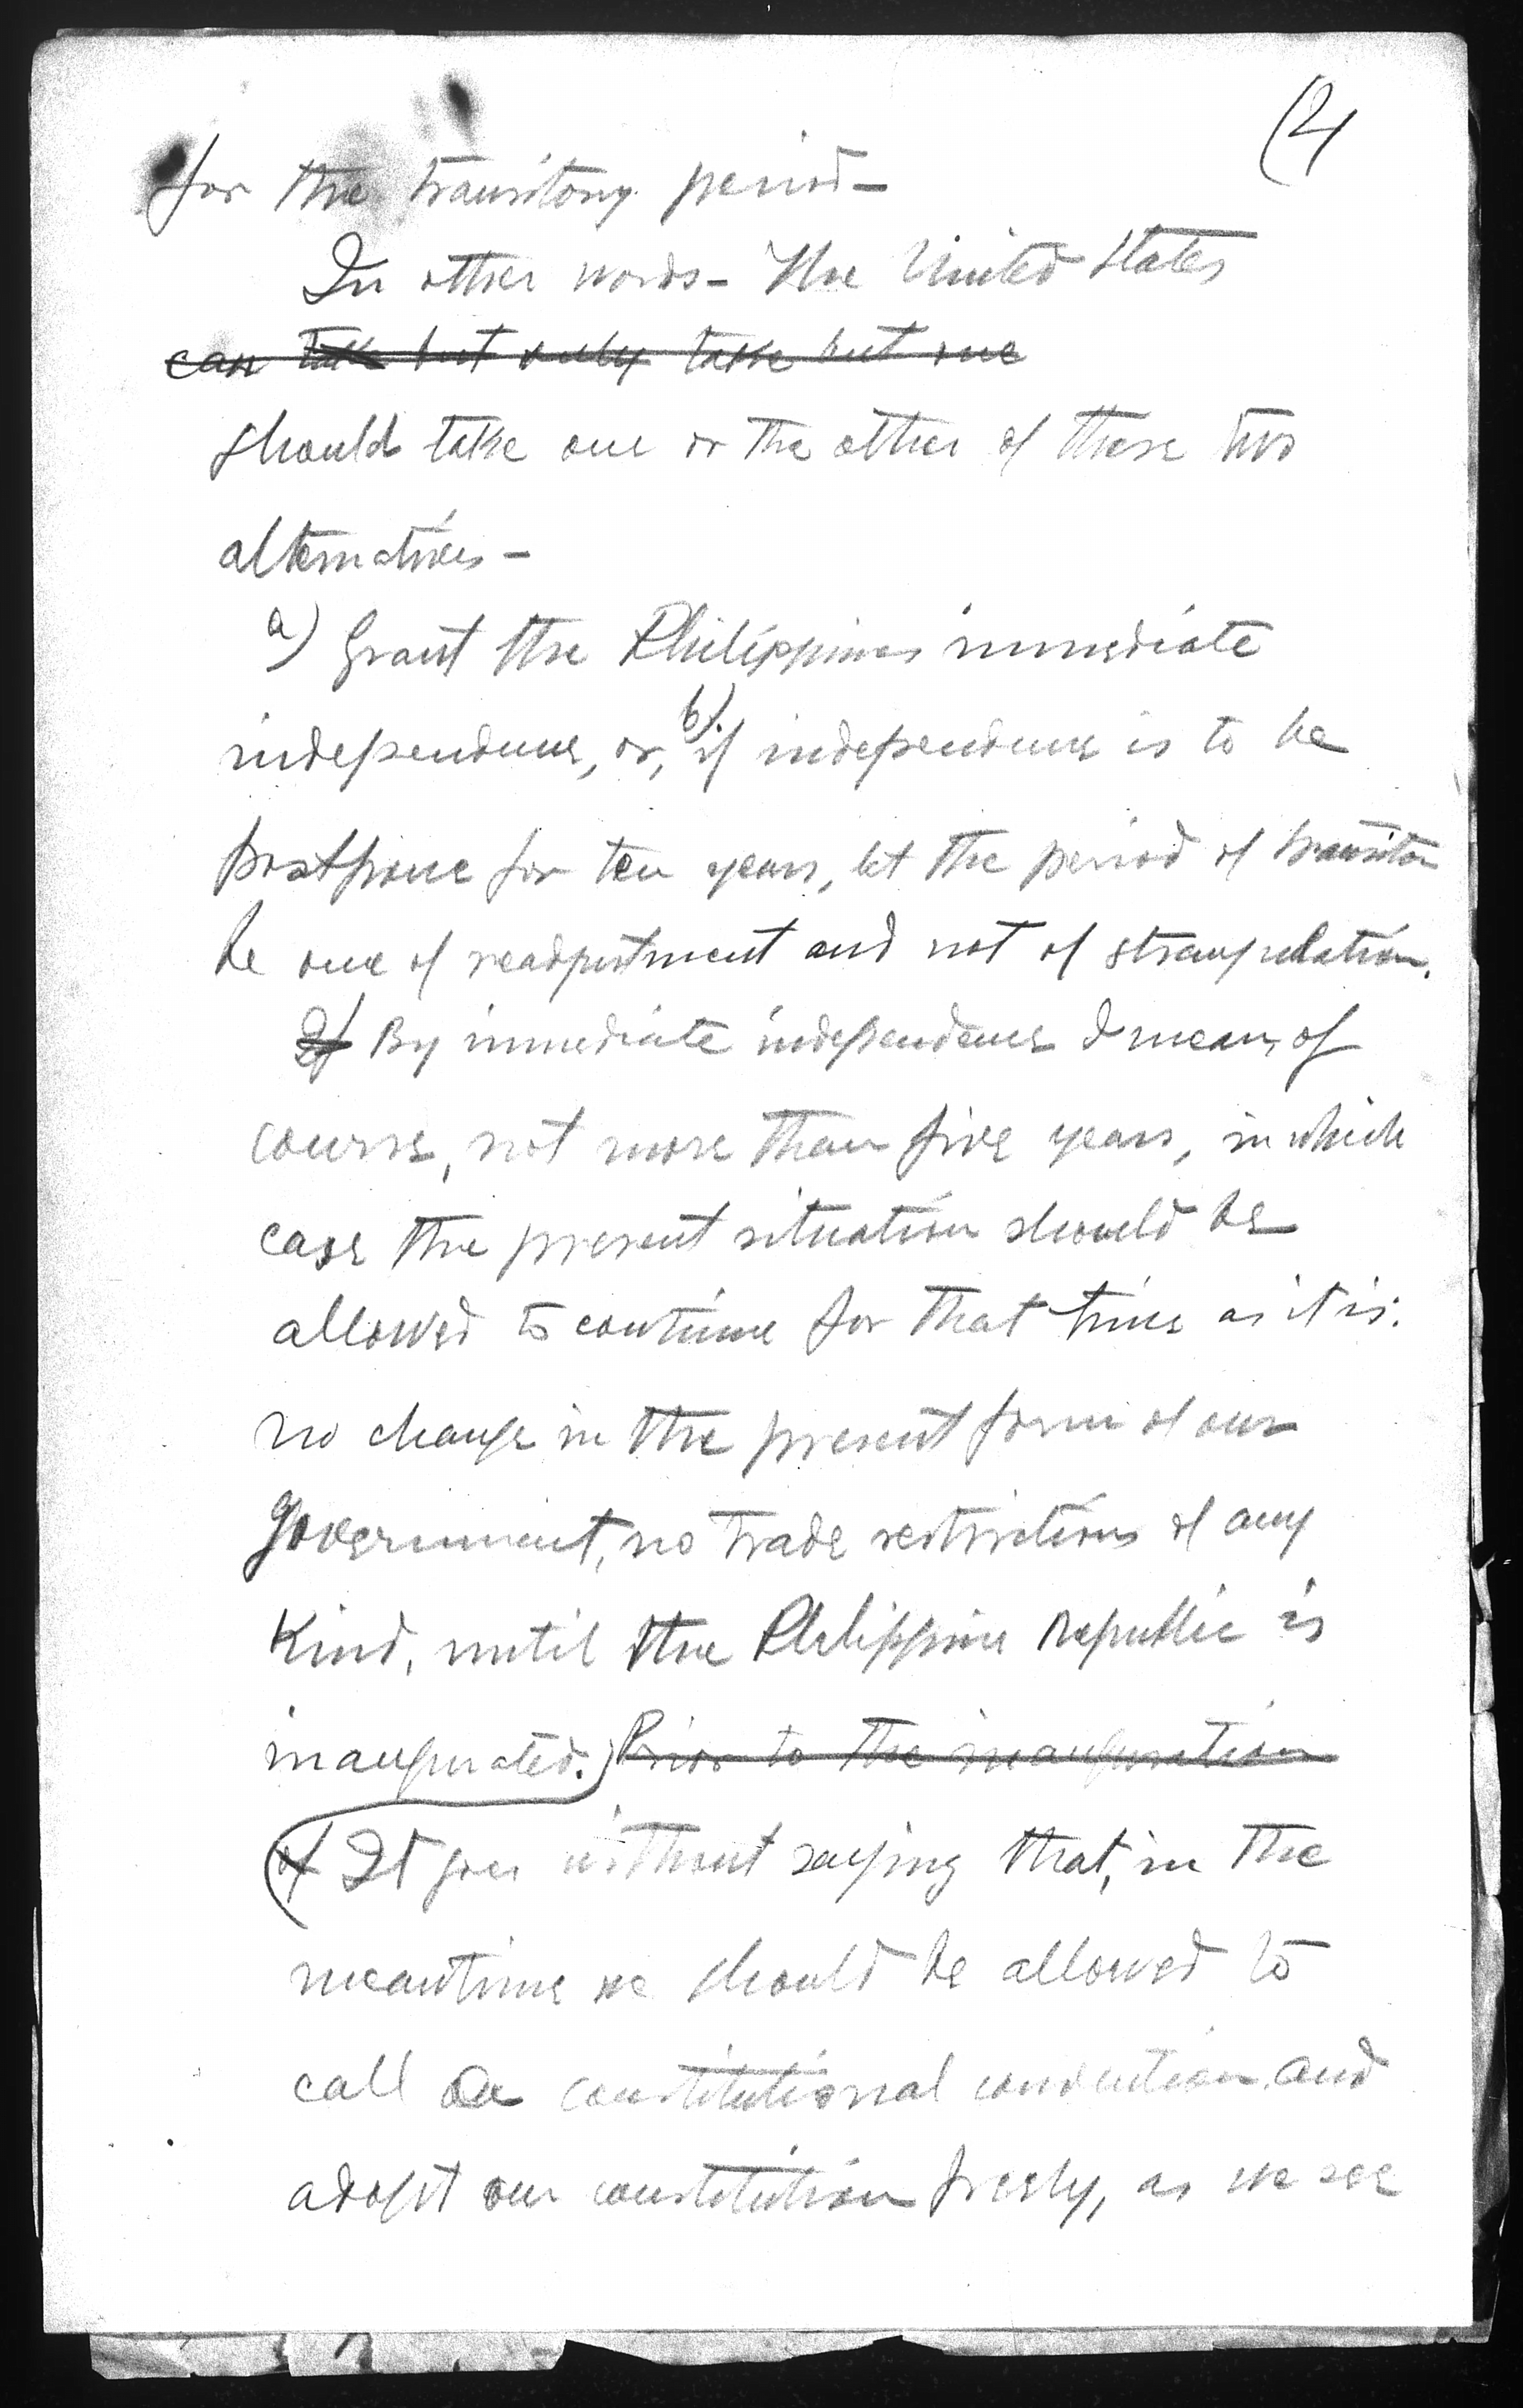 (2)
for the transitory period—
In other words— The United States
can take but only take but one
should take one or the other of these two
alternatives—
a) Grant the Philippines immediate
independence, or, b) if independence is to be
postpone for ten years, let the period of transition
be one of readjustment and not of strangulation.
2) By immediate independence I mean, of
course, not more than five years, in which
case the present situation should be
allowed to continue for that time as it is:
no change in the present form of our
Government, no trade restrictions of any
kind, until the Philippine Republic is
inaugurated. Prior to the inauguration
of It goes without saying that, in the
meantime we should be allowed to
call a constitutional convention and
adopt our constitution freely, as we see